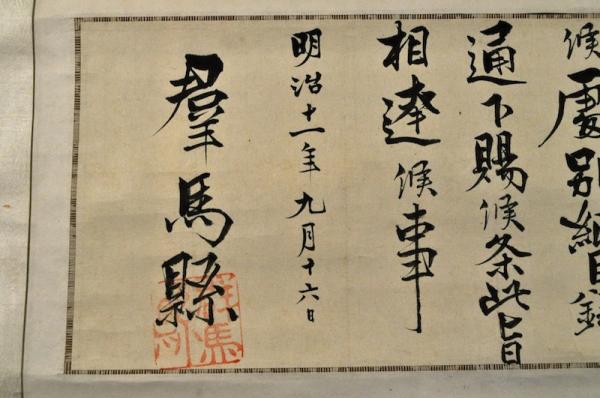 候處別紙目録
通下賜候条此旨
相達候事
明治十一年九月十六日
羣馬縣